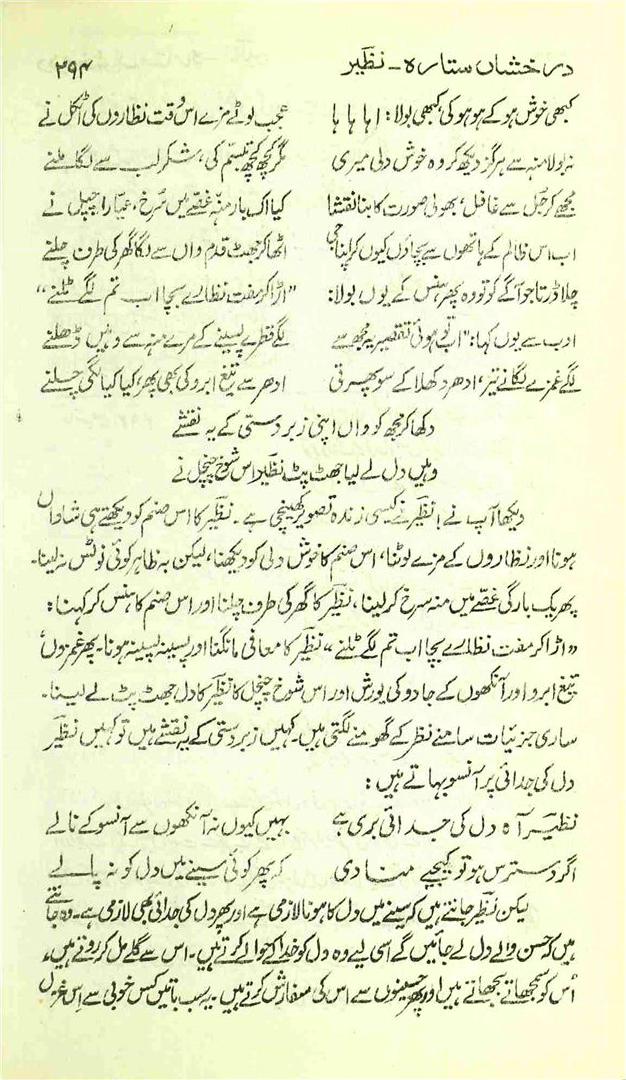 درخشاں ستارہ - نظیر ۲۹۴
کبھی خوش ہو کے ہو ہو کی کبھی بولا: اہا ہا ہا عجب لوٹے مزے اس وقت نظاروں کی اٹکل نے
نہ بولا منہ سے ہرگز دیکھ کر وہ خوش دلی میری مگر کچھ کچھ تبسّم کی، شکر لب سے لگا ملنے
مجھے کر جُل سے غافل، بھولی صورت کا بنا نقشا کیا اک بار منہ غصّے میں سُرخ، عیّار اچپل نے
اب اس ظالم کے ہاتھوں سے بچاؤں کیوں کر اپنا جی اٹھا کر جھٹ قدم واں سے لگا گھر کی طرف چلنے
چلا ڈرتا جو آگے کو تو وہ پھر ہنس کے یوں بولا: "اڑا کر مفت نظارے بچا اب تم لگے ٹلنے"
ادب سے یوں کہا: "اب تو ہوئی تقصیر یہ مجھ سے لگے قطرے پسینے کے مرے منہ سے وہیں ڈھلنے
لگے غمزے لگانے تیر، ادھر دکھلا کے سو پھرتی ادھر سے تیغ ابرو کی بھی پھر، کیا کیا لگی چلنے
دکھا کر مجھ کو واں اپنی زبردستی کے یہ نقشے
وہیں دل لے لیا جھٹ پٹ نظیر اس شوخ چنچل نے
دیکھا آپ نے! نظیر نے کیسی زندہ تصویر کھینچی ہے۔ نظیر کا اس صنم کو دیکھتے ہی شاداں
ہونا اور نظاروں کے مزے لوٹنا، اس صنم کا خوش دلی کو دیکھنا، لیکن بہ ظاہر کوئی نوٹس نہ لینا۔
پھر یک بارگی غصّے میں منہ سرخ کر لینا، نظیر کا گھر کی طرف چلنا اور اس صنم کا ہنس کر کہنا:
"اڑا کر مفت نظارے بچا اب تم لگے ٹلنے" نظیر کا معافی مانگنا اور پسینہ پسینہ ہونا۔ پھر غمزوں،
تیغ ابرو اور آنکھوں کے جادو کی یورش اور اس شوخ چنچل کا نظیر کا دل جھٹ پٹ لے لینا۔
ساری جزئیات سامنے نظر کے گھومنے لگتی ہیں۔ کہیں زبردستی کے یہ نقشے ہیں تو کہیں نظیر
دل کی جدائی پر آنسو بہاتے ہیں:
نظیر آہ دل کی جدائی بری ہے بہیں کیوں نہ آنکھوں سے آنسو کے نالے
اگر دسترس ہو تو کیجیے منادی کہ پھر کوئی سینے میں دل کو نہ پالے
لیکن نظیر جانتے ہیں کہ سینے میں دل کا ہونا لازمی ہے اور پھر دل کی جدائی بھی لازمی ہے۔ وہ جانتے
ہیں کہ حسن والے دل لے جائیں گے اسی لیے وہ دل کو خدا کے حوالے کرتے ہیں۔ اس سے گلے مل کر روتے ہیں،
اُس کو سمجھاتے بجھاتے ہیں اور پھر حسینوں سے اس کی سفارش کرتے ہیں۔ یہ سب باتیں کس خوبی سے اِس غزل